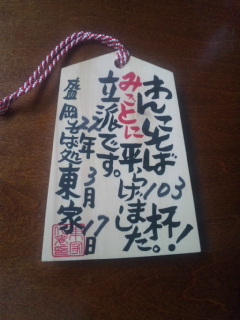 わんこそば103杯!
みごとに平らげました。
立派です。
22年3月17日
盛岡そば処東家